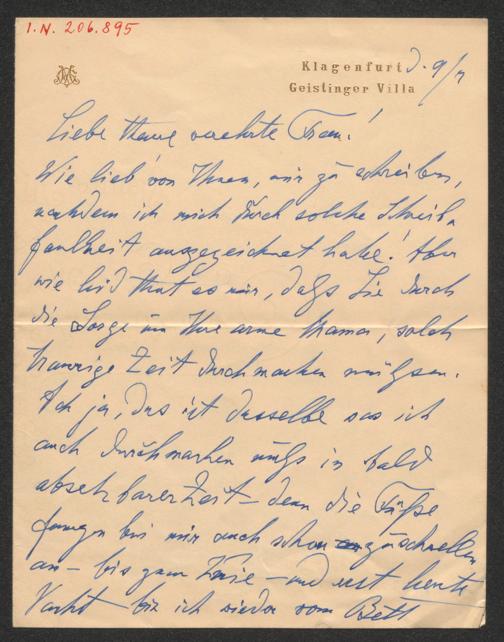 I.N. 206.895
Klagenfurt, d. 9/7
Geistinger Villa
Liebe theure verehrte Frau!
Wie lieb von Ihnen, mir zu schreiben,
nachdem ich mich durch solche Schreib-
faulheit ausgezeichnet habe! Aber
wie leid thut es mir, daß Sie durch
die Sorge um Ihre arme Mama, solch
traurige Zeit durchmachen müßen.
Ach ja, das ist dasselbe was ich
auch durchmachen muß in bald
absehbarer Zeit – denn die Füße
fangen bei mir auch schon anzuschwellen
an – bis zum Knie – und erst heute
Nacht bin ich wieder vom Bett